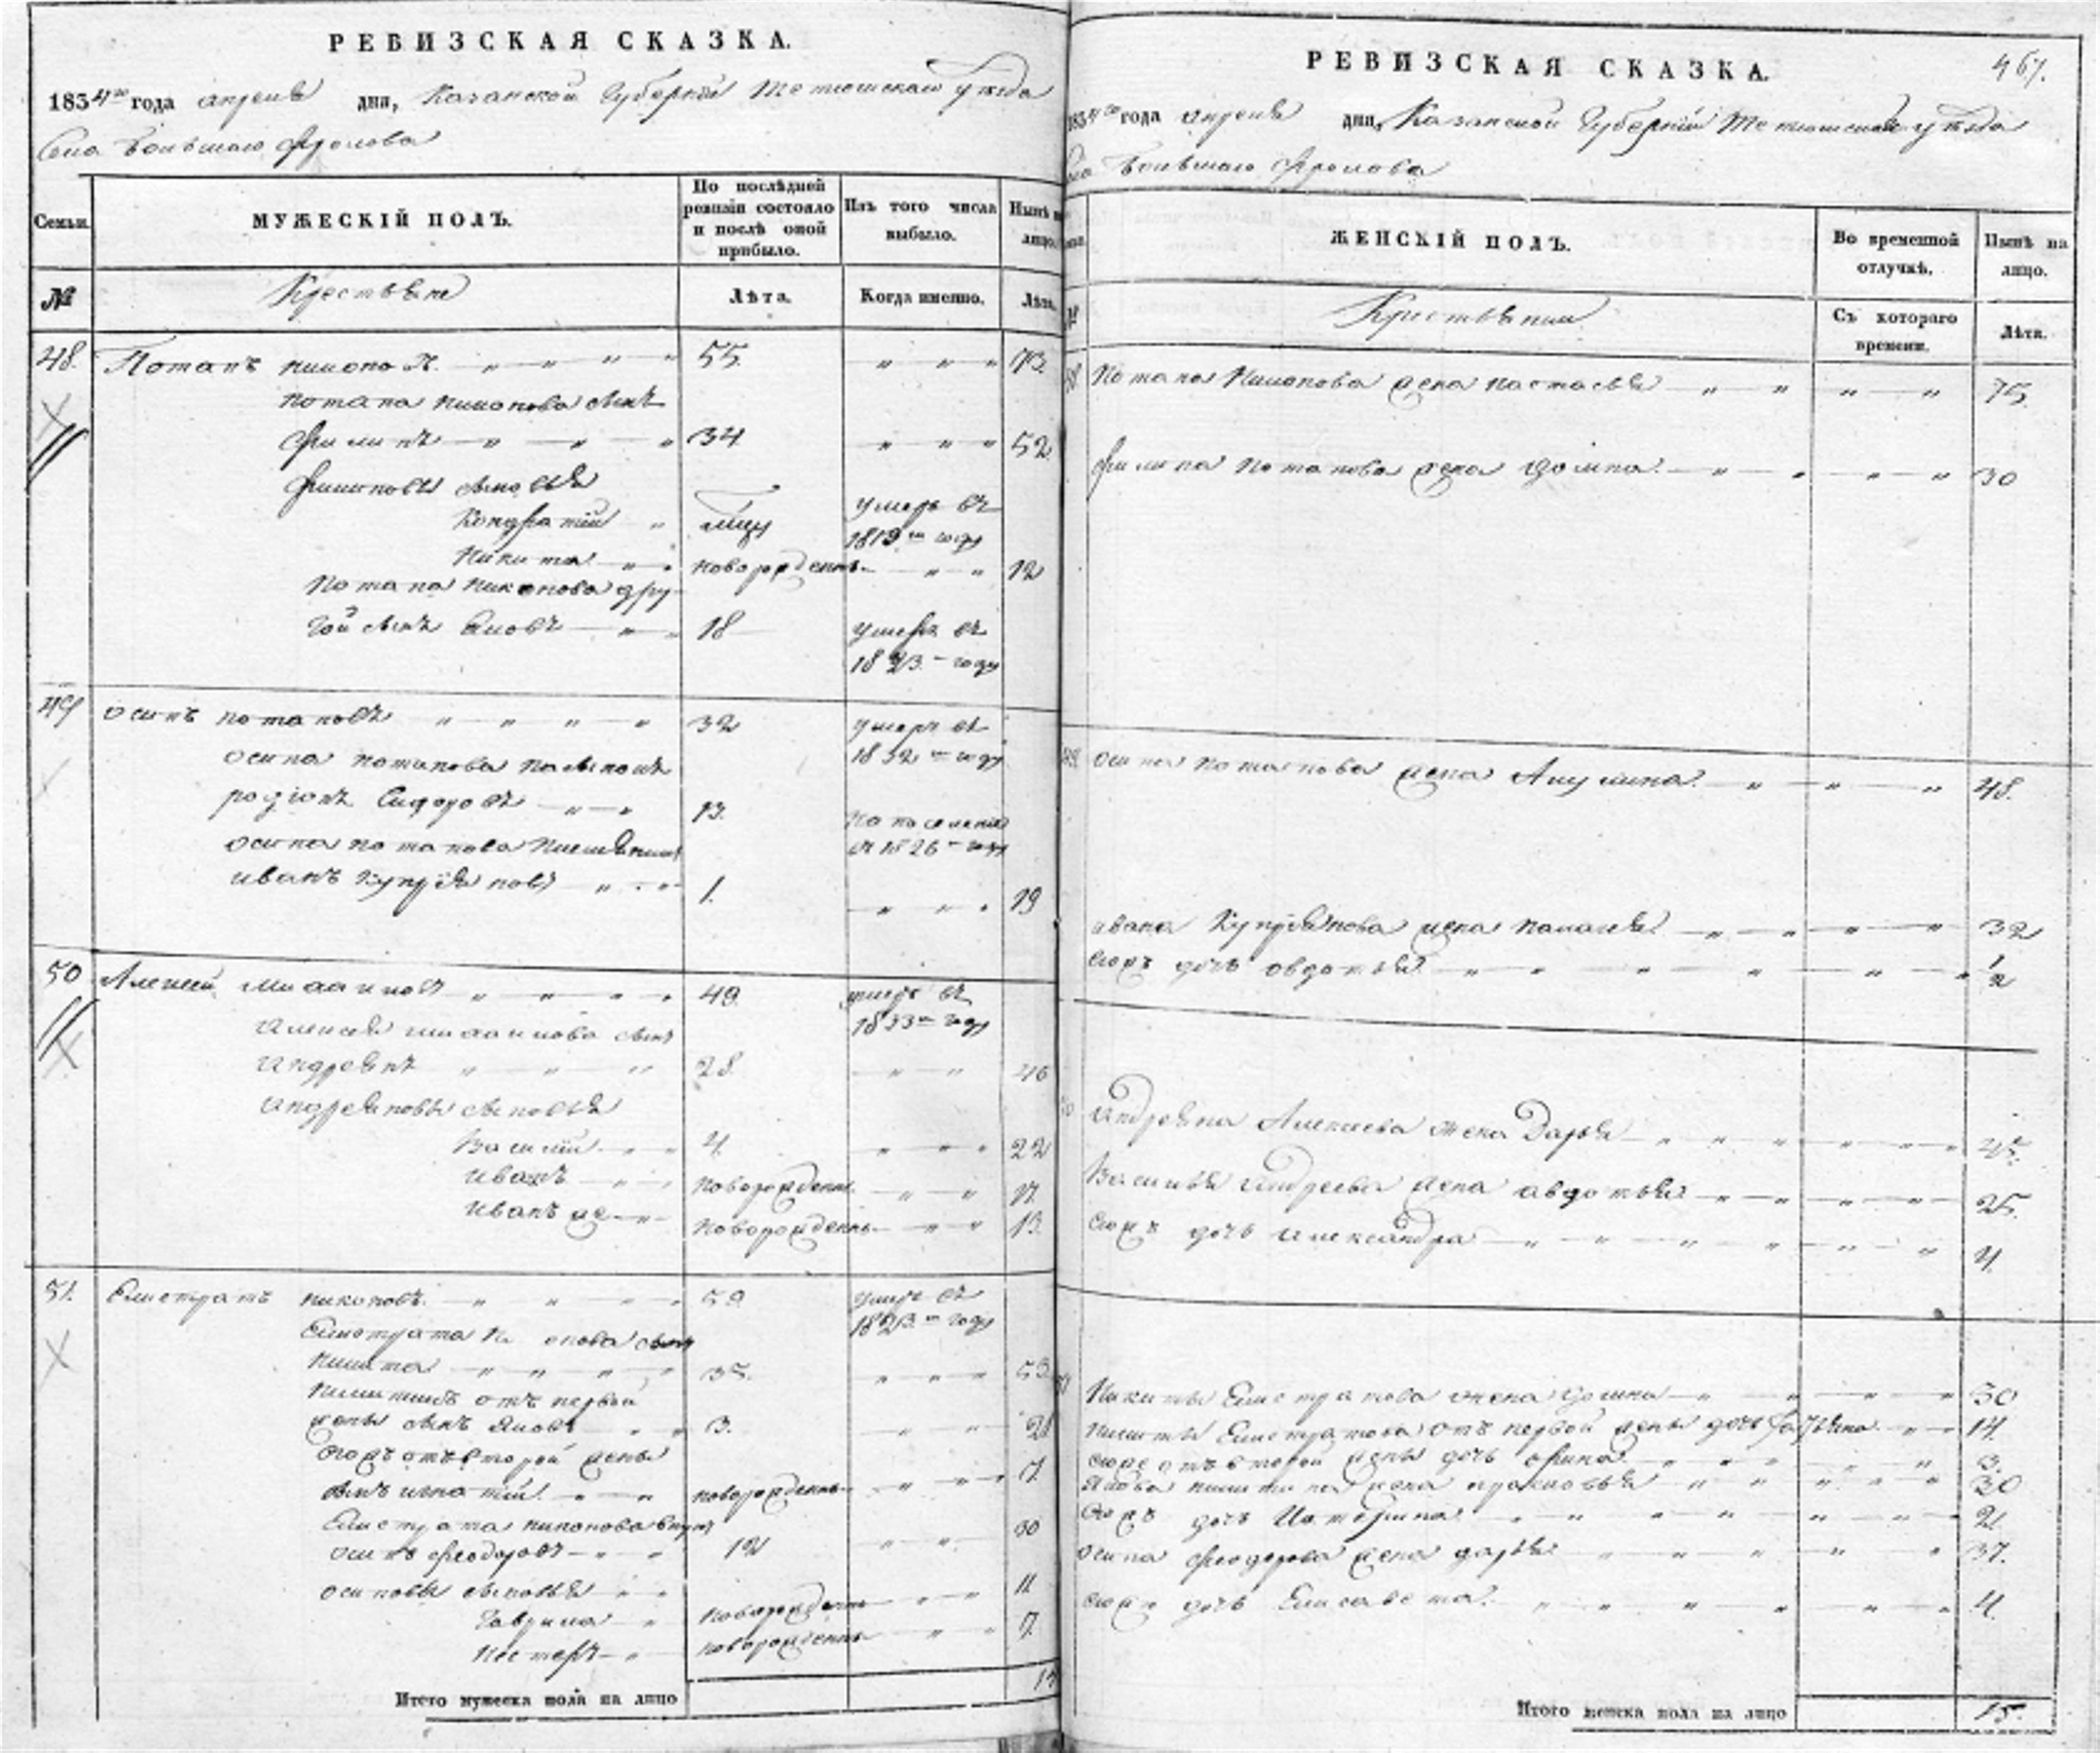 РЕВИЗСКАЯ СКАЗКА.
1834го года апреля дня, Казанской Губернiи Тетюшскаго уѣзда
Села Большаго Фролова
Семьи.
МУЖЕСКIЙ ПОЛЪ.
По послѣдней ревизiи состояло и послѣ оной прибыло.
Изъ того числа выбыло.
Нынѣ на лицо.
№
Крестьяне
Лѣта.
Когда именно.
Лѣта.
48. Потапъ Никоновъ. 55. 73.
Потапа Никонова сынъ
Филипъ 34 52
Филиповы сыновья
Кондратiй умеръ въ
1819м году
Никита новорожденъ 12
Потапа Никонова дру-
гой сынъ Яковъ 18 умеръ въ
1823м году
49 Осипъ Потаповъ 32 умеръ въ
1832м году
Осипа Потапова пасынокъ
Родiонъ Сидоровъ 13. На поселенiе
въ 1826м году
Осипа Потапова племянникъ
Иванъ Купрiяновъ 1. 19
50 Алексей 49. умеръ въ
1833м году
Алексея сынъ
Андреянъ 28. 46
Андреяновы сыновья
Василiй 4. 22
Иванъ новорожденъ 17.
Иванъ же новорожденъ 13.
51. Елистратъ Никоновъ. 59 умеръ въ
1823м году
Елистрата Никонова сынъ
Никита 35. 53
Никитинъ отъ первой
жены сынъ Яковъ 3. 21
Егожъ отъ второй жены
сынъ Игнатiй новорожденъ 7.
Елистрата Никонова внукъ
Осипъ Феодоровъ 12 30
Осиповы сыновья
Гаврила новорожденъ 11
Нестеръ новорожденъ 7.
Итого мужеска пола на лицо 13
РЕВИЗСКАЯ СКАЗКА.
467.
1834го года апреля дня, Казанской Губернiи Тетюшскаго уѣзда
Села Большаго Фролова
ЖЕНСКIЙ ПОЛЪ.
Во временной отлучкѣ.
Нынѣ на лицо.
№
Крестьянки
Съ котораго времени.
Лѣта.
48 Потапа Никонова жена Настасья 75.
Филипа Потапова жена Домна. 30
49 Осипа Потапова жена Акулина. 48.
Ивана Купрiянова жена Пелагея 32
Еюжъ дочь Овдотья 1/2
50 Андреяна Алексеева жена Дарья 45.
Василья Андреева жена Авдотья 25.
Еюжъ дочь Александра 4.
51 Никиты Елистратова жена Домна 30
Никиты Елистратова отъ первой жены дочь Татьяна 14.
Егоже отъ второй жены дочь Орина 3.
Якова Никитина жена Прасковья 30
Еюжъ дочь Катерина 2.
Осипа Феодорова жена Дарья 37.
Еюжъ дочь Елисавета. 4.
Итого женска пола на лицо 15.